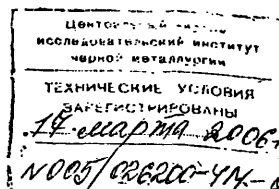 исследовательский институт
черной металлургии
ТЕХНИЧЕСКИЕ УСЛОВИЯ
ЗАРЕГИСТРИРОВАНЫ
17 марта 2006г
N005/026200-ЧМ-